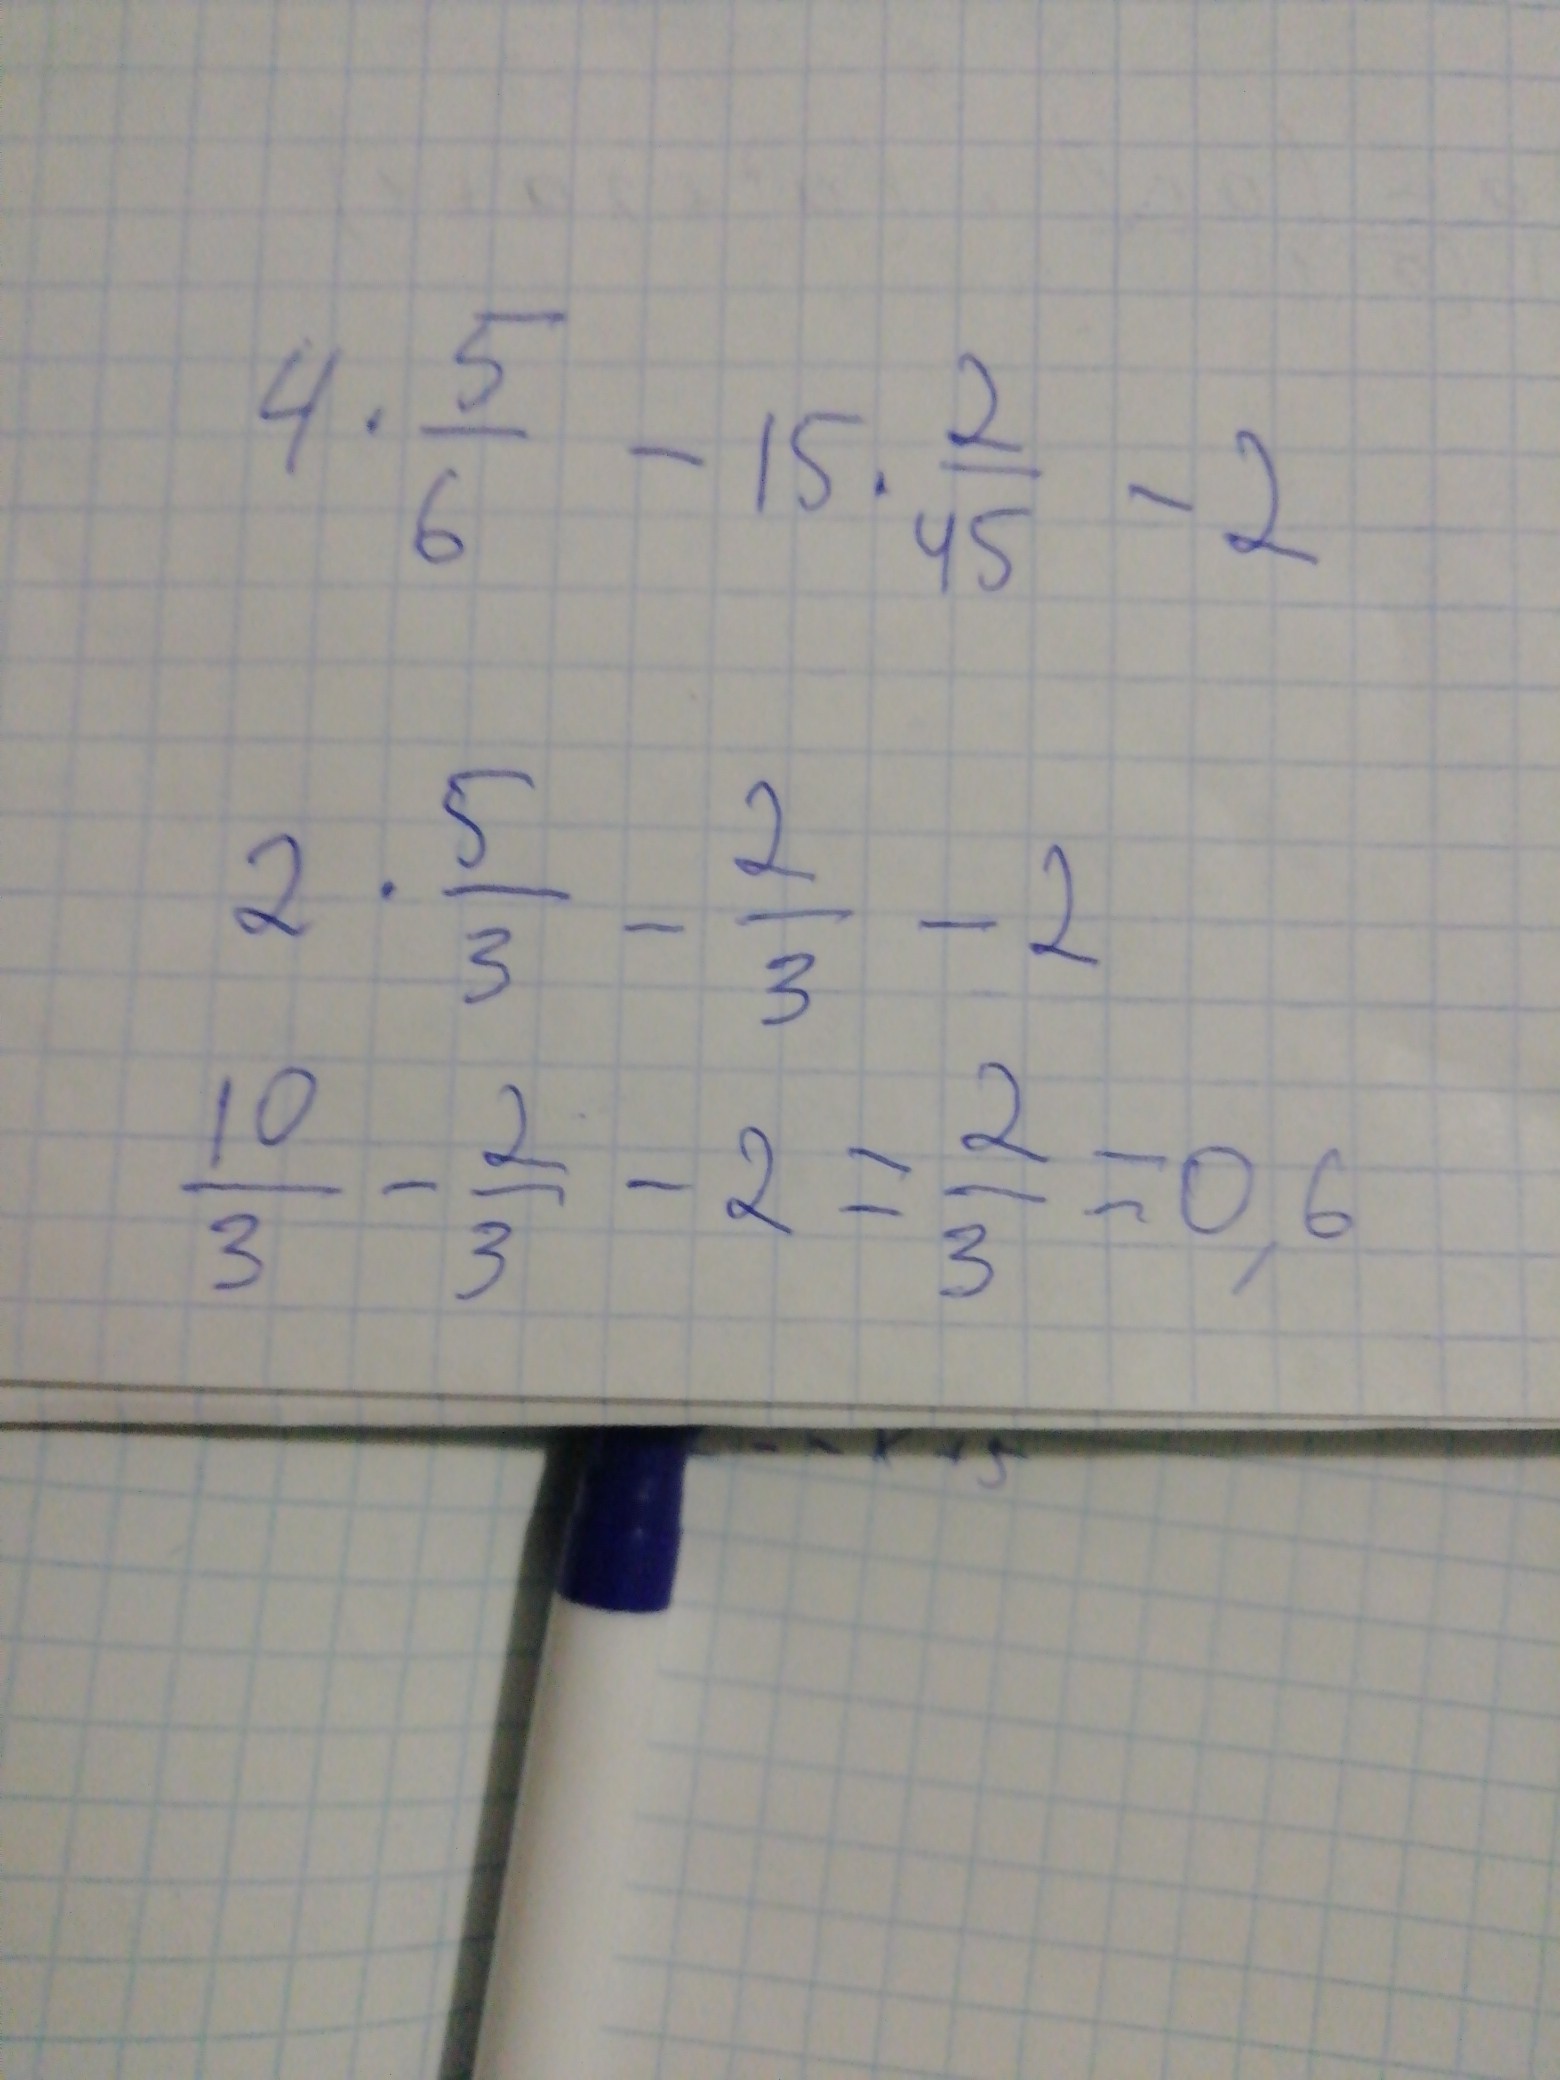 4 · 5/6 - 15 · 2/45 - 2
2 · 5/3 - 2/3 - 2
10/3 - 2/3 - 2 = 2/3 = 0,6